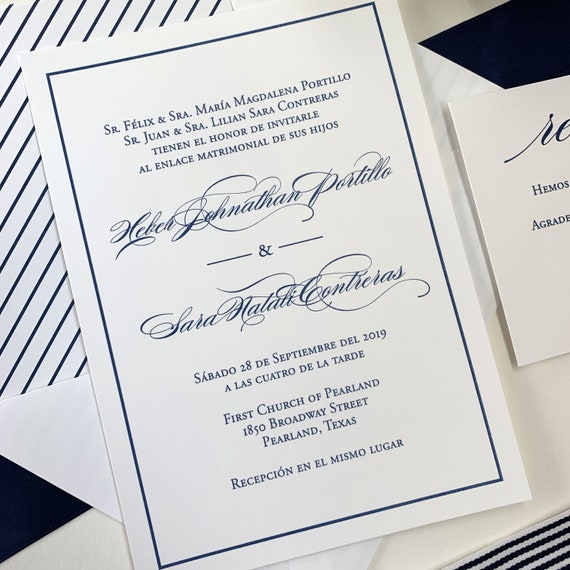 Sr. Félix & Sra. María Magdalena Portillo
Sr. Juan & Sra. Lilian Sara Contreras
tienen el honor de invitarle
al enlace matrimonial de sus hijos
Heber Johnathan Portillo
&
Sara Natali Contreras
Sábado 28 de Septiembre del 2019
a las cuatro de la tarde
First Church of Pearland
1850 Broadway Street
Pearland, Texas
Recepción en el mismo lugar
Hemos